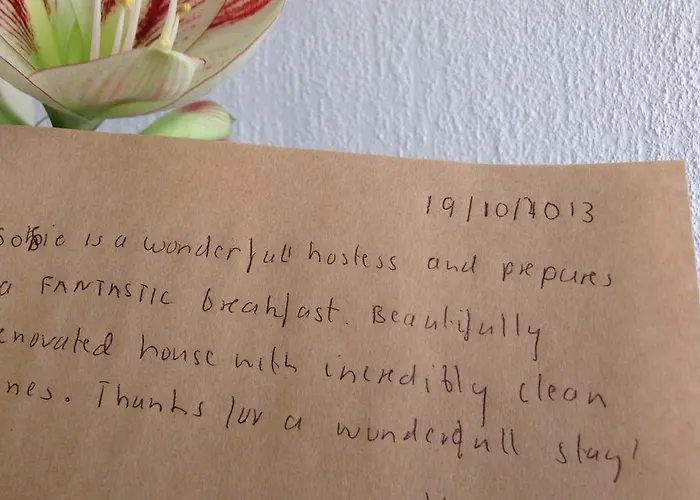 19/10/2013
Sofie is a wonderfull hostess and prepares
a FANTASTIC breakfast. Beautifully
enovated house with incredibly clean
nes. Thanks for a wonderfull stay!